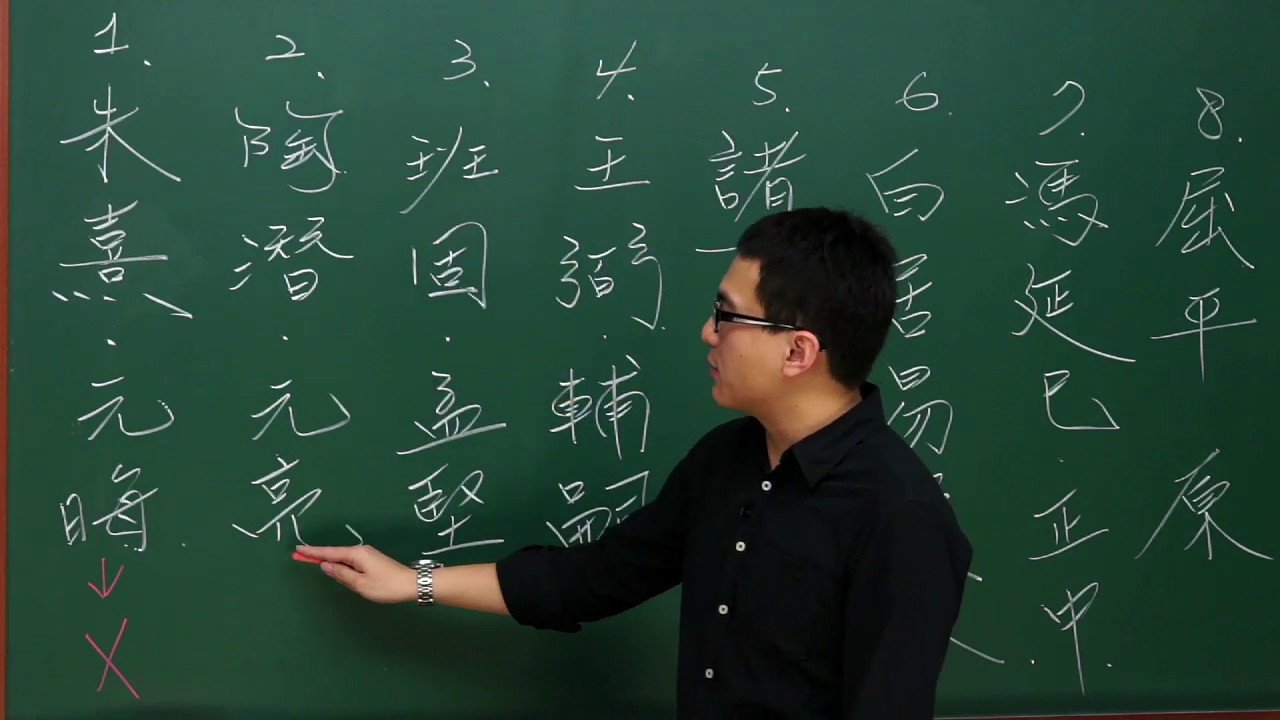 1. 朱熹·元晦 ↓ X
2. 陶潛·元亮
3. 班固·孟堅
4. 王弼·輔嗣
5. 諸
6. 白居易
7. 馮延巳·正中
8. 屈平 原